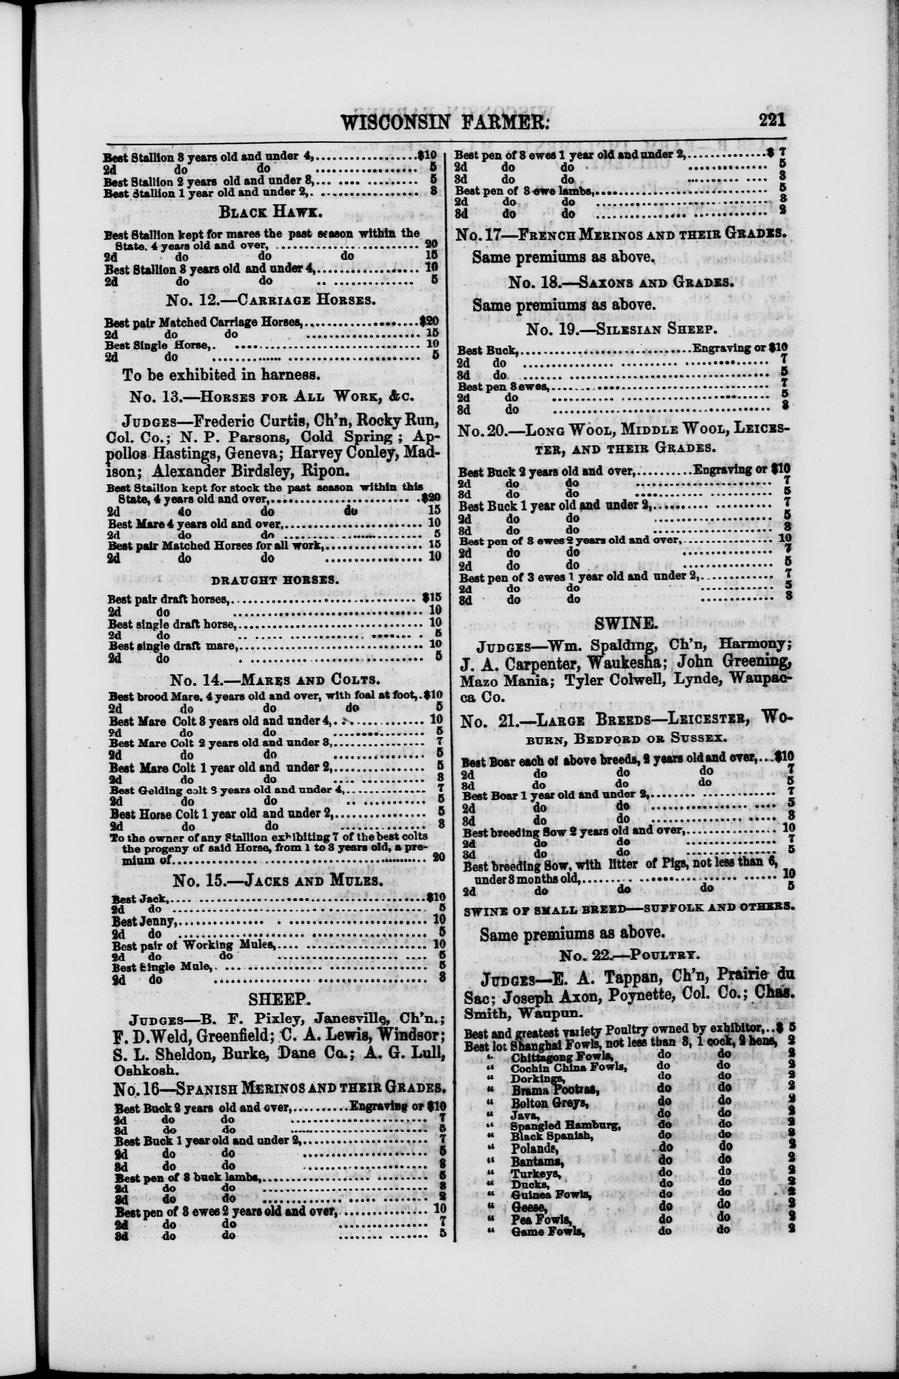 WISCONSIN FARMER: 221
Best Stallion 3 years old and under 4,..................$10
2d do do .................. 5
Best Stallion 2 years old and under 3,... .... .......... 5
Best Stallion 1 year old and under 2,. .................. 3
BLACK HAWK.
Best Stallion kept for mares the past season within the
State. 4 years old and over, .......................... 20
2d do do do 15
Best Stallion 3 years old and under 4,.................. 10
2d do do .. .. .............. 5
No. 12.—CARRIAGE HORSES.
Best pair Matched Carriage Horses,....................$20
2d do do .................... 15
Best Single Horse,. .............................. 10
2d do .............................. 5
To be exhibited in harness.
No. 13.—HORSES FOR ALL WORK, &C.
JUDGES—Frederic Curtis, Ch'n, Rocky Run,
Col. Co.; N. P. Parsons, Cold Spring; Ap-
pollos Hastings, Geneva; Harvey Conley, Mad-
ison; Alexander Birdsley, Ripon.
Best Stallion kept for stock the past season within this
State, 4 years old and over,..........................$20
2d do do do 15
Best Mare 4 years old and over,........................ 10
2d do do ........................ 5
Best pair Matched Horses for all work,.................. 15
2d do do .................. 10
DRAUGHT HORSES.
Best pair draft horses,..............................$15
2d do .............................. 10
Best single draft horse,.............................. 10
2d do .............................. 5
Best single draft mare,.............................. 10
2d do .............................. 5
No. 14.—MARES AND COLTS.
Best brood Mare. 4 years old and over, with foal at foot,.$10
2d do do do 5
Best Mare Colt 3 years old and under 4,................ 10
2d do do ................ 5
Best Mare Colt 2 years old and under 3,................ 7
2d do do ................ 5
Best Mare Colt 1 year old and under 2,................ 5
2d do do ................ 3
Best Gelding colt 3 years old and under 4,.............. 7
2d do do .............. 5
Best Horse Colt 1 year old and under 2,................ 5
2d do do ................ 3
To the owner of any Stallion exhibiting 7 of the best colts
the progeny of said Horse, from 1 to 3 years old, a pre-
mium of.............................................. 20
No. 15.—JACKS AND MULES.
Best Jack,........................................$10
2d do ........................................ 5
Best Jenny,........................................ 10
2d do ........................................ 5
Best pair of Working Mules,.......................... 10
2d do do .......................... 5
Best Single Mule,.................................. 5
2d do .................................. 3
SHEEP.
JUDGES—B. F. Pixley, Janesville, Ch'n.;
F. D. Weld, Greenfield; C. A. Lewis, Windsor;
S. L. Sheldon, Burke, Dane Co.; A. G. Lull,
Oshkosh.
No. 16—SPANISH MERINOS AND THEIR GRADES.
Best Buck 2 years old and over,..........Engraving or $10
2d do do ...................... 7
3d do do ...................... 5
Best Buck 1 year old and under 2,...................... 7
2d do do ...................... 5
3d do do ...................... 3
Best pen of 3 buck lambs,............................ 5
2d do do ............................ 3
3d do do ............................ 2
Best pen of 3 ewes 2 years old and over,................ 10
2d do do ................ 7
3d do do ................ 5
Best pen of 3 ewes 1 year old and under 2,..............$ 7
2d do do .............. 5
3d do do .............. 3
Best pen of 3 ewe lambs,.............................. 5
2d do do .............................. 3
3d do do .............................. 2
No. 17—FRENCH MERINOS AND THEIR GRADES.
Same premiums as above.
No. 18.—SAXONS AND GRADES.
Same premiums as above.
No. 19.—SILESIAN SHEEP.
Best Buck,..............................Engraving or $10
2d do .............................. 7
3d do .............................. 5
Best pen 3 ewes,.................................... 7
2d do .................................... 5
3d do .................................... 3
No. 20.—LONG WOOL, MIDDLE WOOL, LEICES-
TER, AND THEIR GRADES.
Best Buck 2 years old and over,..........Engraving or $10
2d do do ...................... 7
3d do do ...................... 5
Best Buck 1 year old and under 2,...................... 7
2d do do ...................... 5
3d do do ...................... 3
Best pen of 3 ewes 2 years old and over,................ 10
2d do do ................ 7
2d do do ................ 5
Best pen of 3 ewes 1 year old and under 2,.............. 7
2d do do .............. 5
3d do do .............. 3
SWINE.
JUDGES—Wm. Spalding, Ch'n, Harmony;
J. A. Carpenter, Waukesha; John Greening,
Mazo Mania; Tyler Colwell, Lynde, Waupac-
ca Co.
No. 21.—LARGE BREEDS—LEICESTER, WO-
BURN, BEDFORD OR SUSSEX.
Best Boar each of above breeds, 2 years old and over,...$10
2d do do do 7
3d do do do 5
Best Boar 1 year old and under 2,...................... 7
2d do do ...................... 5
3d do do ...................... 3
Best breeding Sow 2 years old and over,................ 10
2d do do ................ 7
3d do do ................ 5
Best breeding Sow, with litter of Pigs, not less than 6,
under 8 months old,................................ 10
2d do do do 5
SWINE OF SMALL BREED—SUFFOLK AND OTHERS.
Same premiums as above.
No. 22.—POULTRY.
JUDGES—E. A. Tappan, Ch'n, Prairie du
Sac; Joseph Axon, Poynette, Col. Co.; Chas.
Smith, Waupun.
Best and greatest variety Poultry owned by exhibitor,..$ 5
Best lot Shanghai Fowls, not less than 3, 1 cock, 2 hens, 2
" Chittagong Fowls, do do 2
" Cochin China Fowls, do do 2
" Dorkings, do do 2
" Brama Pootras, do do 2
" Bolton Greys, do do 2
" Java, do do 2
" Spangled Hamburg, do do 2
" Black Spanish, do do 2
" Polands, do do 2
" Bantams, do do 2
" Turkeys, do do 2
" Ducks, do do 2
" Guinea Fowls, do do 2
" Geese, do do 2
" Pea Fowls, do do 2
" Game Fowls, do do 2